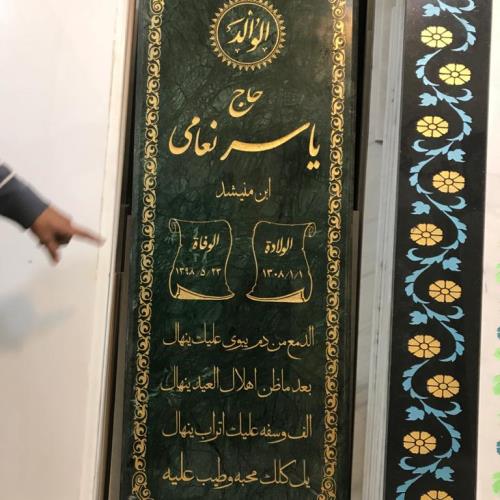 الوالد
حاج
یاسر نعامی
ابن منیشد
الولادة
۱۳۰۸/۱/۱
الوفاة
۱۳۹۸/۵/۲۳
الدمع من دم یبوی علیك ینهال
بعد ماظن اهلال العید ینهال
الف وسفه علیك اتراب ینهال
یل کلك محبه وطیب علیه